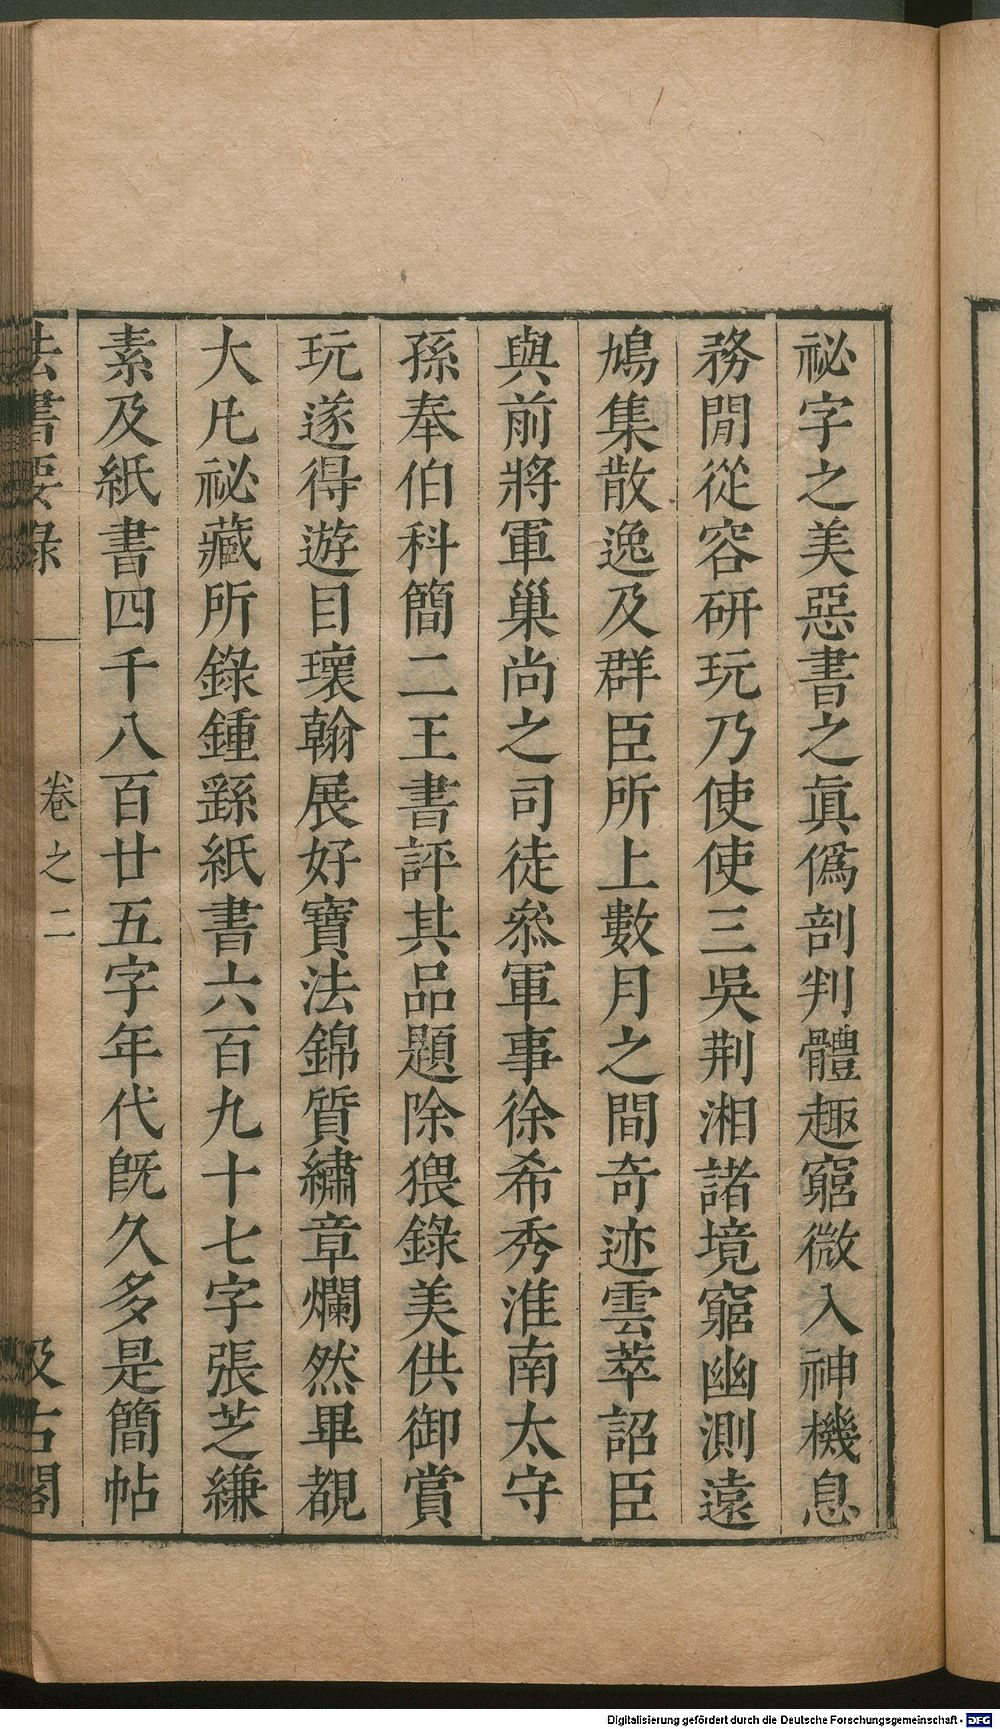 祕字之美惡書之眞僞剖判體趣窮微入神機息
務閒從容研玩乃使使三吳荆湘諸境窮幽測遠
鳩集散逸及群臣所上數月之間奇迹雲萃詔臣
與前將軍巢尚之司徒叅軍事徐希秀淮南太守
孫奉伯科簡二王書評其品題除猥錄美供御賞
玩遂得遊目瓌翰展好寶法錦質繡章爛然畢覩
大凡祕藏所錄鍾繇紙書六百九十七字張芝縑
素及紙書四千八百廿五字年代旣久多是簡帖
法書要錄 卷之二 汲古閣
Digitalisierung gefördert durch die Deutsche Forschungsgemeinschaft - DFG